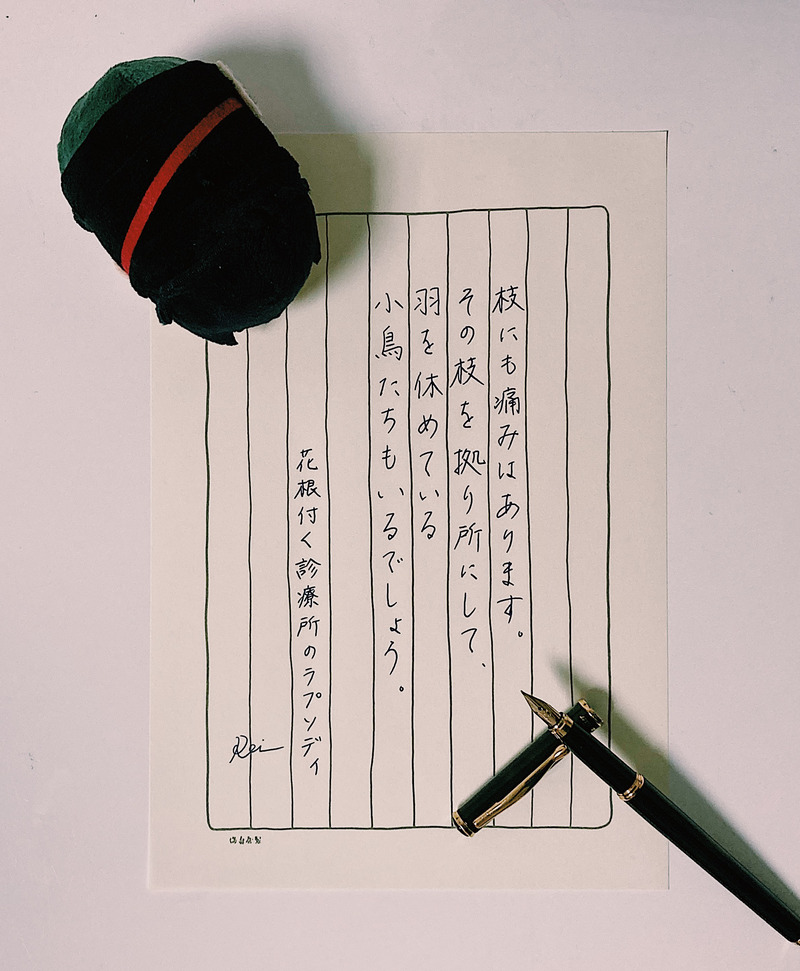 枝にも痛みはあります。
その枝を拠り所にして、
羽を休めている
小鳥たちもいるでしょう。
花根付く診療所のラプソディ
Rei